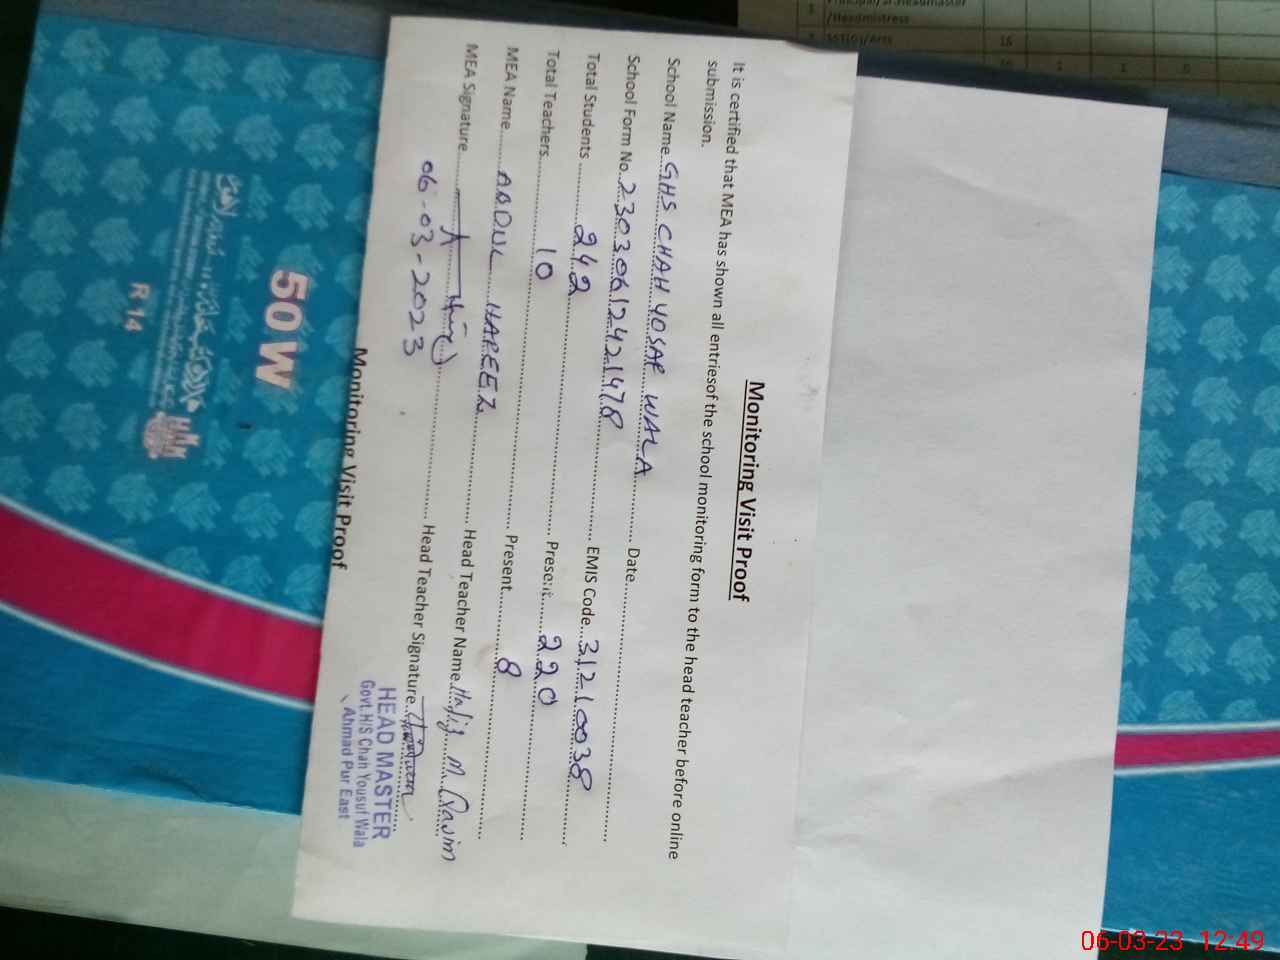 Monitoring Visit Proof
It is certified that MEA has shown all entriesof the school monitoring form to the head teacher before online
submission.
School Name..GHS CHAH YOSAF WALA.......... Date..........
School Form No. 23030612421478 .......... EMIS Code.... 31210038
Total Students .......... 242 .......... Present.... 220
Total Teachers.......... 10 .......... Present.......... 8
MEA Name.......... ABDUL HAFEEZ .......... Head Teacher Name. Hafiz M.
MEA Signature.......... Head Teacher Signature..........
06-03-2023
HEAD MASTER
Govt. H/S Chah Yousuf Wala
Ahmad Pur East
Monitoring Visit Proof
50 W
R 14
/Headmistress
16
06-03-23 12:49